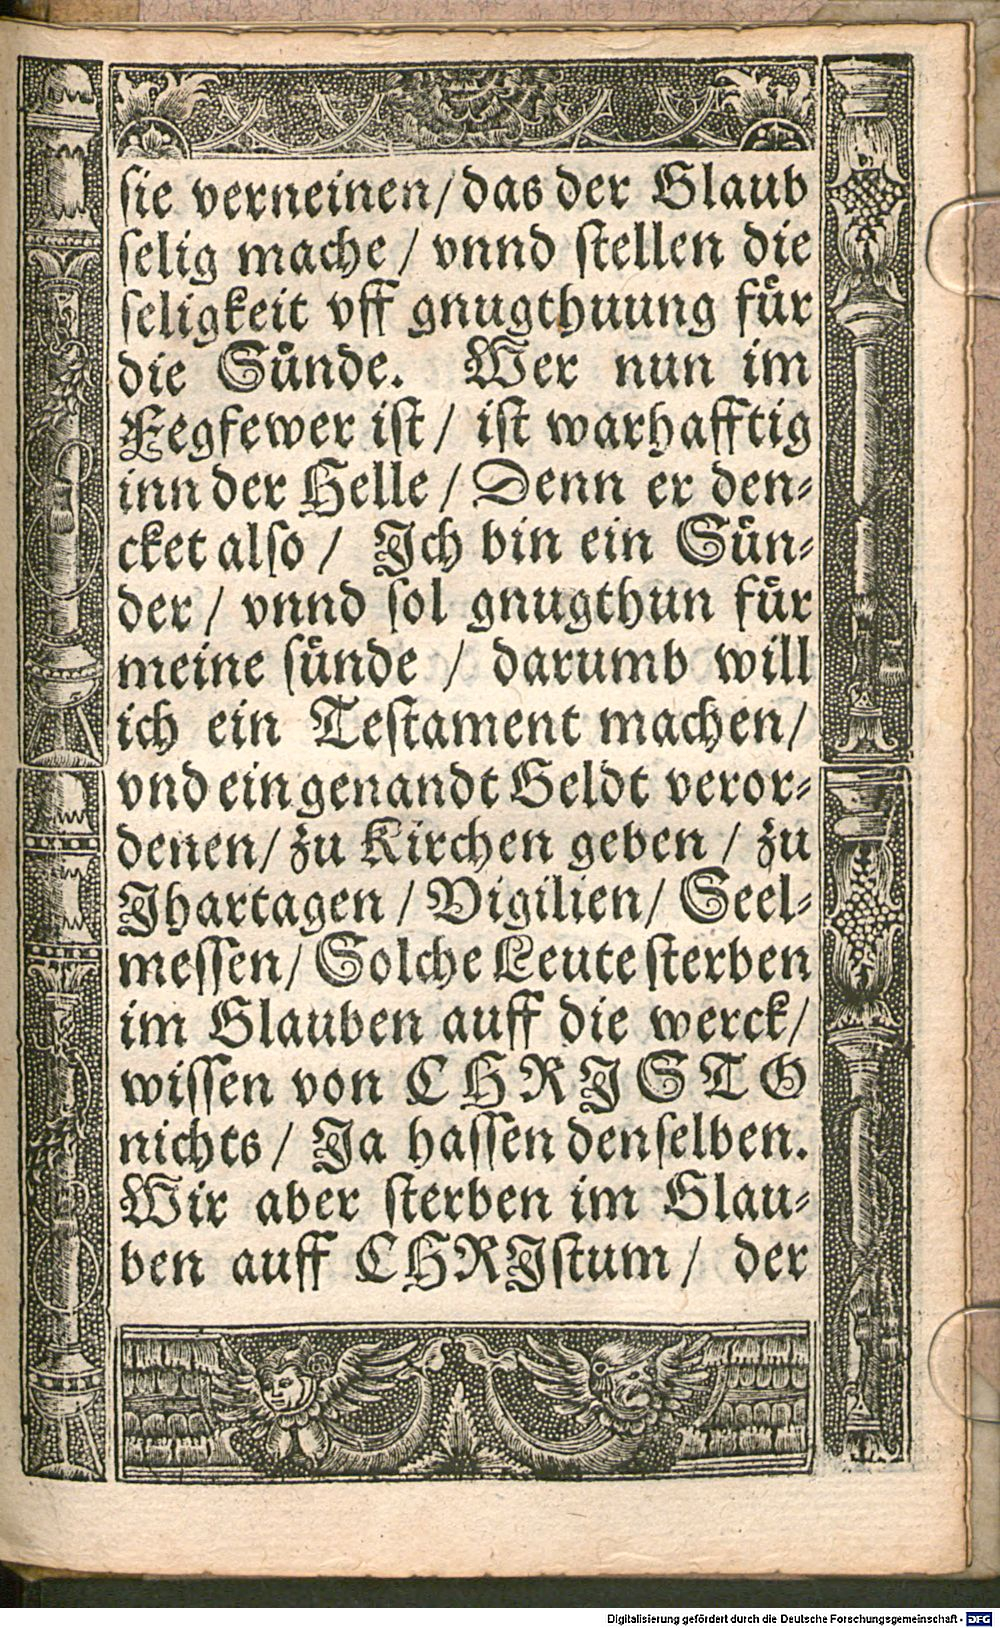 sie verneinen/ das der Glaub
selig mache/ vnnd stellen die
seligkeit vff gnugthuung fuͤr
die Suͤnde. Wer nun im
Fegfewer ist/ ist warhafftig
inn der Helle/ Denn er den⸗
cket also/ Ich bin ein Suͤn⸗
der/ vnnd sol gnugthun fuͤr
meine suͤnde/ darumb will
ich ein Testament machen/
vnd ein genandt Geldt veror⸗
denen/ zu Kirchen geben/ zu
Jhartagen/ Vigilien/ Seel⸗
messen/ Solche Leute sterben
im Glauben auff die werck/
wissen von CHRISTO
nichts/ Ja hassen denselben.
Wir aber sterben im Glau⸗
ben auff CHRIstum/ der
Digitalisierung gefördert durch die Deutsche Forschungsgemeinschaft - DFG